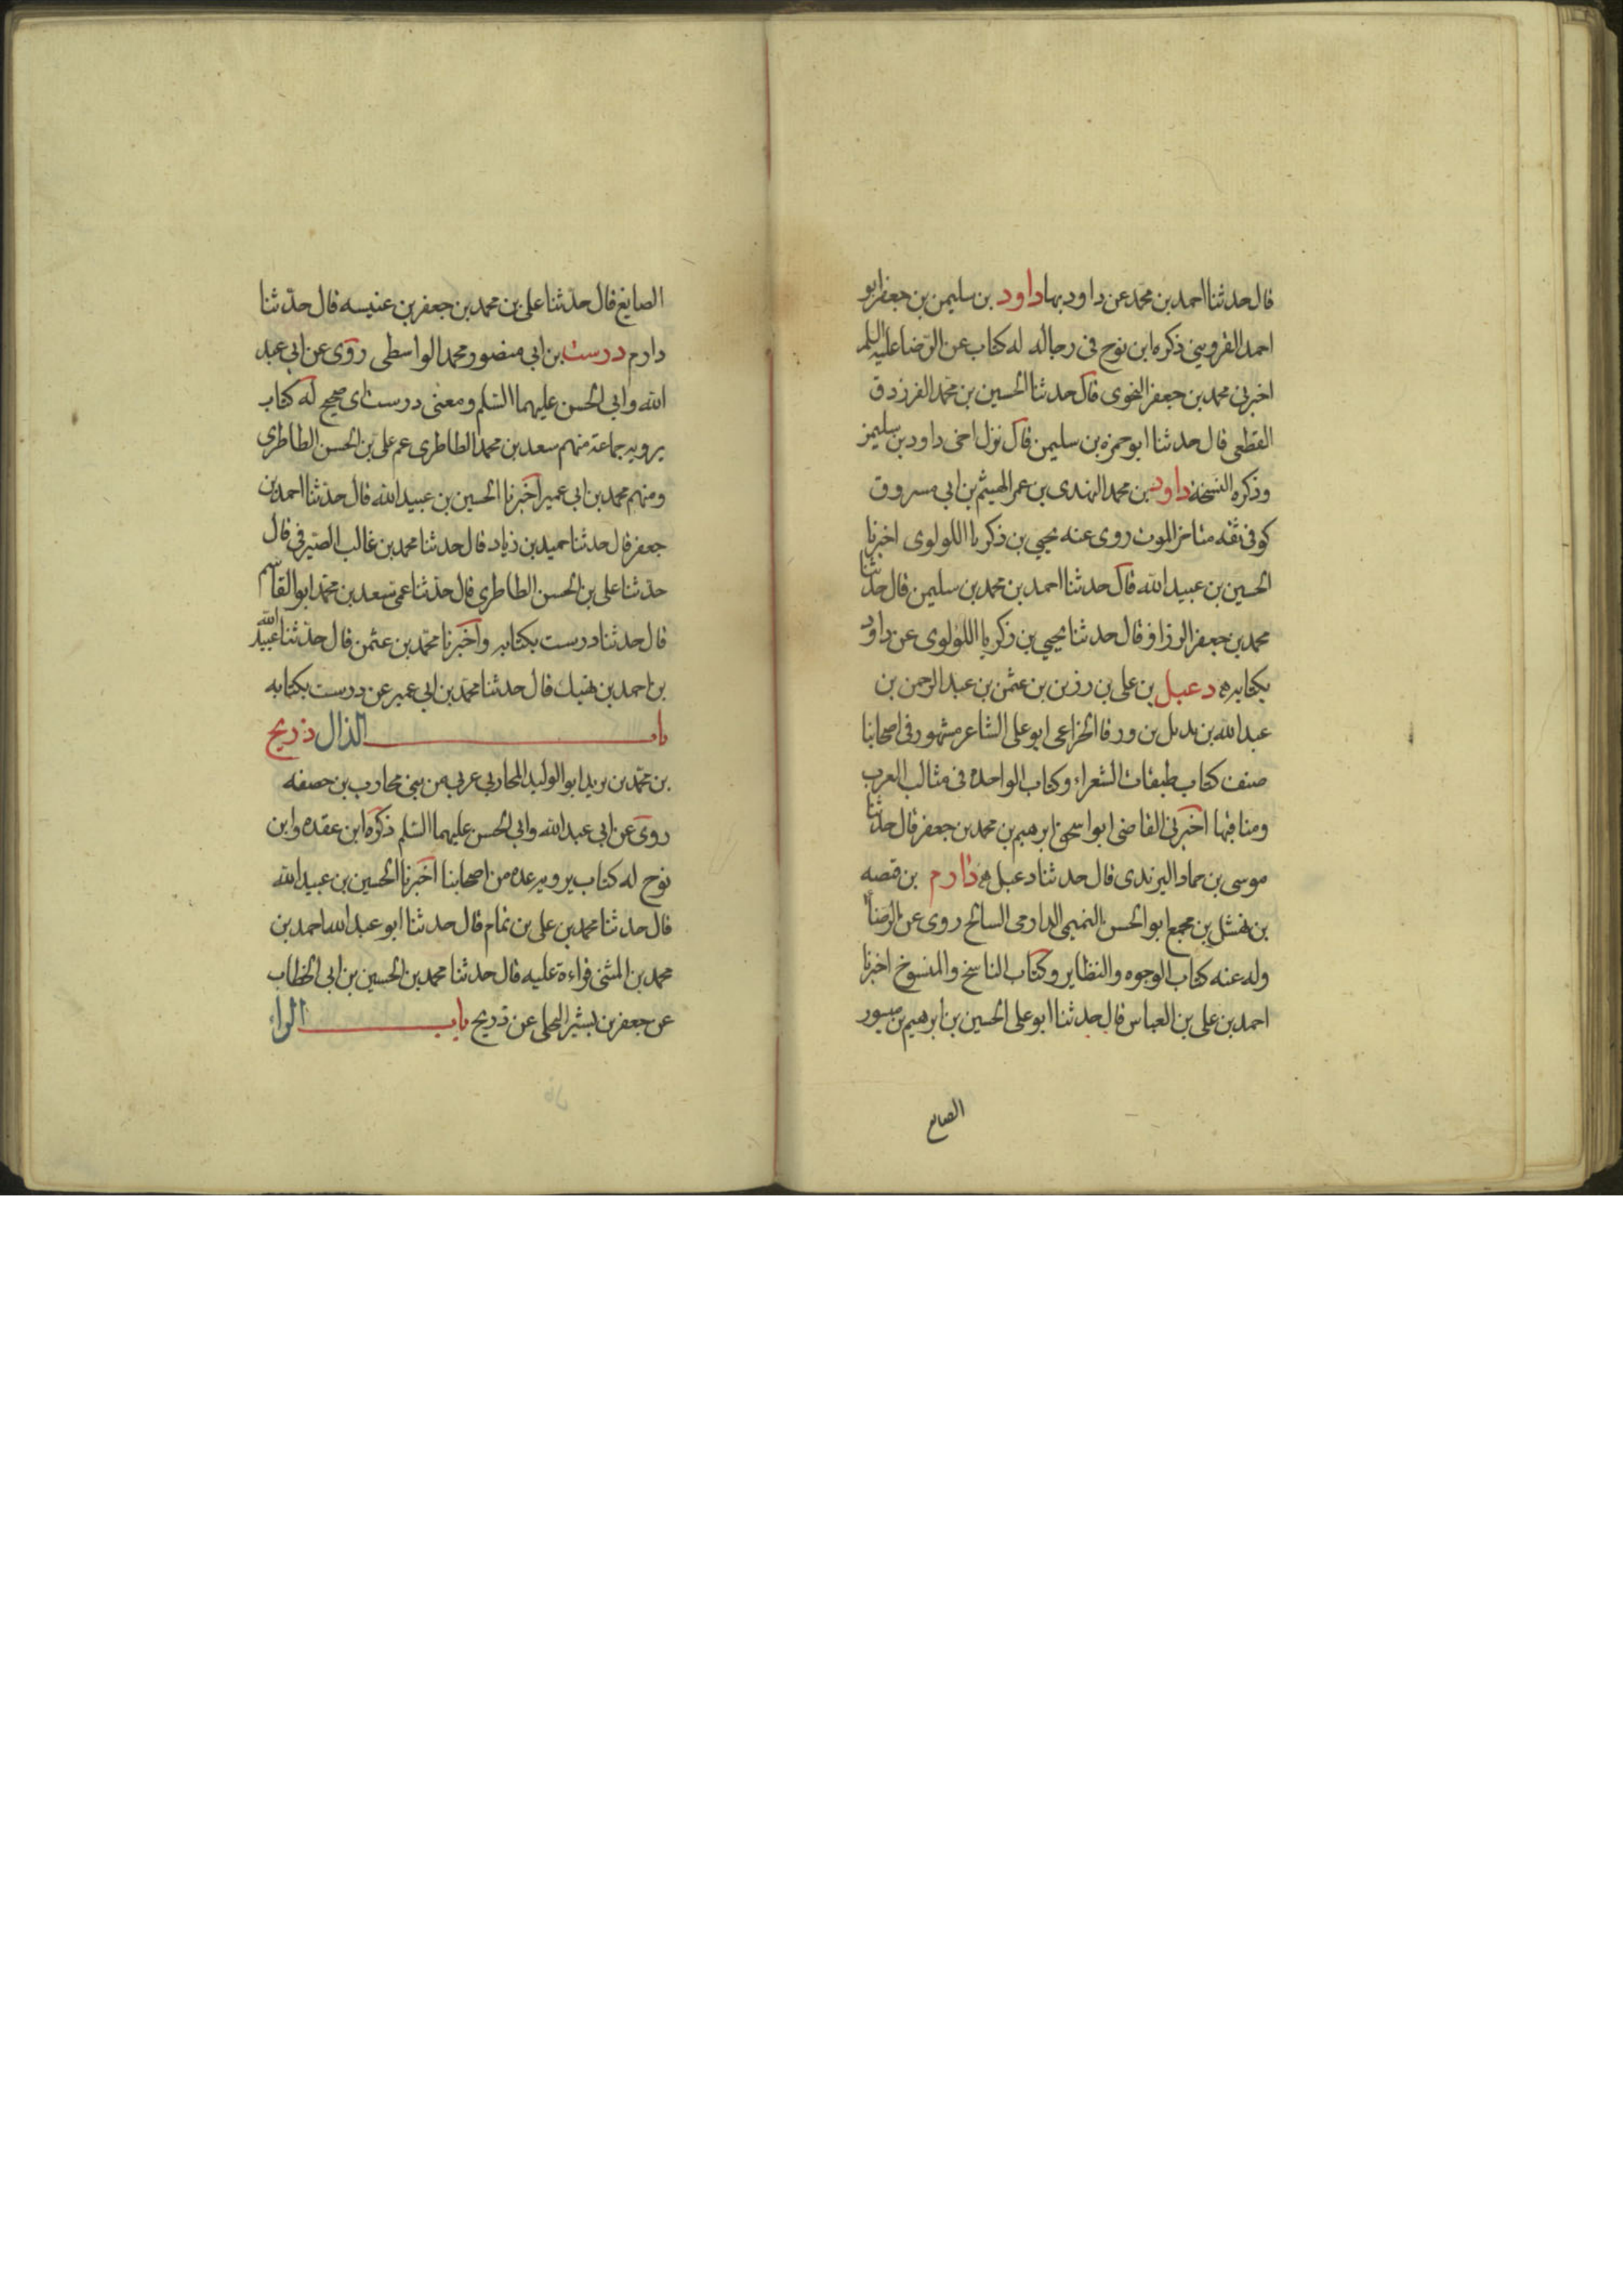 قال حدثنا احمد بن محمد عن داود بها داود بن سليمن بن جعفر ابو
احمد القزويني ذكره ابن نوح في رجاله له كتاب عن الرضا عليه السلم
اخبرني محمد بن جعفر النحوى قال حدثنا الحسين بن محمد الفرزدق
القطعى قال حدثنا ابو حمزه بن سليمن قال نزل اخى داود بن سليمن
وذكره النسخة داود بن محمد النهدى بن عم الهيثم بن ابى مسروق
كوفى ثقه متاخر الموت روى عنه يحيى بن ذكريا اللولوى اخبرنا
الحسين بن عبيد الله قال حدثنا احمد بن محمد بن سليمن قال حدثنا
محمد بن جعفر الرزاز قال حدثنا يحيى بن زكريا اللولوى عن داود
بكتابه دعبل بن على بن رزين بن عثمن بن عبد الرحمن بن
عبد الله بن بديل بن ورقا الخزاعى ابو على الشاعر مشهور فى اصحابنا
صنف كتاب طبقات الشعراء وكتاب الواحده فى مثالب العرب
ومناقبها اخبرنى القاضى ابو اسحق ابرهيم بن محمد بن جعفر قال حدثنا
موسى بن حماد اليزيدى قال حدثنا دعبل دارم بن قبصه
بن نهشل بن مجمع ابو الحسن التميمى الدارمى السائح روى عن الرضا
وله عنه كتاب الوجوه والنظاير وكتاب الناسخ والمنسوخ اخبرنا
احمد بن على بن العباس قال حدثنا ابو على الحسين بن ابرهيم بن ميسور
الصايغ
الصايغ قال حدّثنا على بن محمد بن جعفر بن عنبسه قال حدّثنا
دارم درست بن ابى منصور محمد الواسطى روى عن ابى عبد
الله وابى الحسن عليهما السّلم ومعنى درست اى صحيح له كتاب
يرويه جماعة منهم سعد بن محمد الطاطرى عم على بن الحسن الطاطرى
ومنهم محمد بن ابى عمير اخبرنا الحسين بن عبيد الله قال حدثنا احمد بن
جعفر قال حدثنا حميد بن زياد قال حدثنا محمد بن غالب الصيرفى قال
حدّثنا على بن الحسن الطاطرى قال حدّثنا عمى سعد بن محمّد ابو القاسم
قال حدثنا درست بكتابه واخبرنا محمّد بن عثمن قال حدّثنا عبيد الله
بن احمد بن نهيك قال حدثنا محمّد بن ابى عمير عن درست بكتابه
باب الذال ذريح
بن محمّد بن يزيد ابو الوليد المحاربى عربى من بنى محارب بن حصفه
روى عن ابى عبد الله وابى الحسن عليهما السّلم ذكره ابن عقده وابن
نوح له كتاب يرويه عده من اصحابنا اخبرنا الحسين بن عبيد الله
قال حدثنا محمد بن على بن تمام قال حدثنا ابو عبد الله احمد بن
محمد بن المثنى قراءة عليه قال حدثنا محمد بن الحسين بن ابى الخطاب
عن جعفر بن بشير البجلى عن ذريح باب الراء